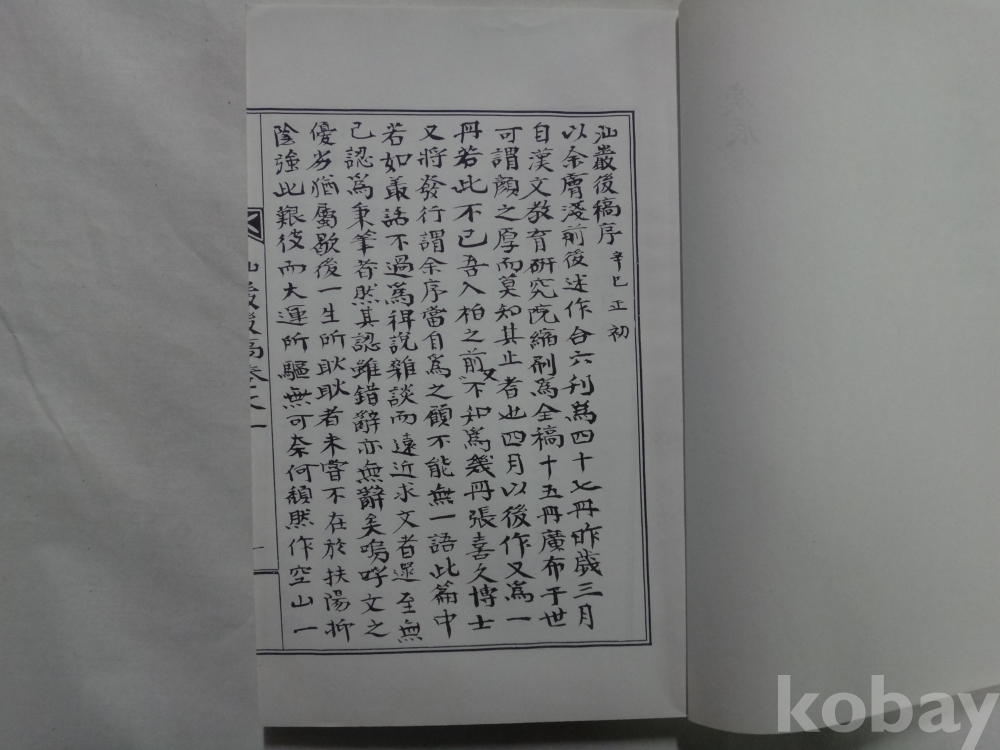 汕叢後稿序 辛巳正初
以余膚淺前後述作合六刋爲四十七冊昨歲三月
自漢文敎育硏究院縮刷爲全稿十五冊廣布于世
可謂顔之厚而莫知其止者也四月以後作又爲一
冊若此不已吾入柏之前又不知爲幾冊張喜久博士
又將發行謂余序當自爲之顧不能無一語此篇中
若如叢話不過爲稗說雜談而遠近求文者遝至無
已認爲秉筆者然其認雖錯辭亦無辭矣嗚呼文之
優劣猶屬歇後一生所耿耿者未嘗不在於扶陽抑
陰強此艱彼而大運所驅無可奈何頹然作空山一
汕叢後稿卷之一
kobay